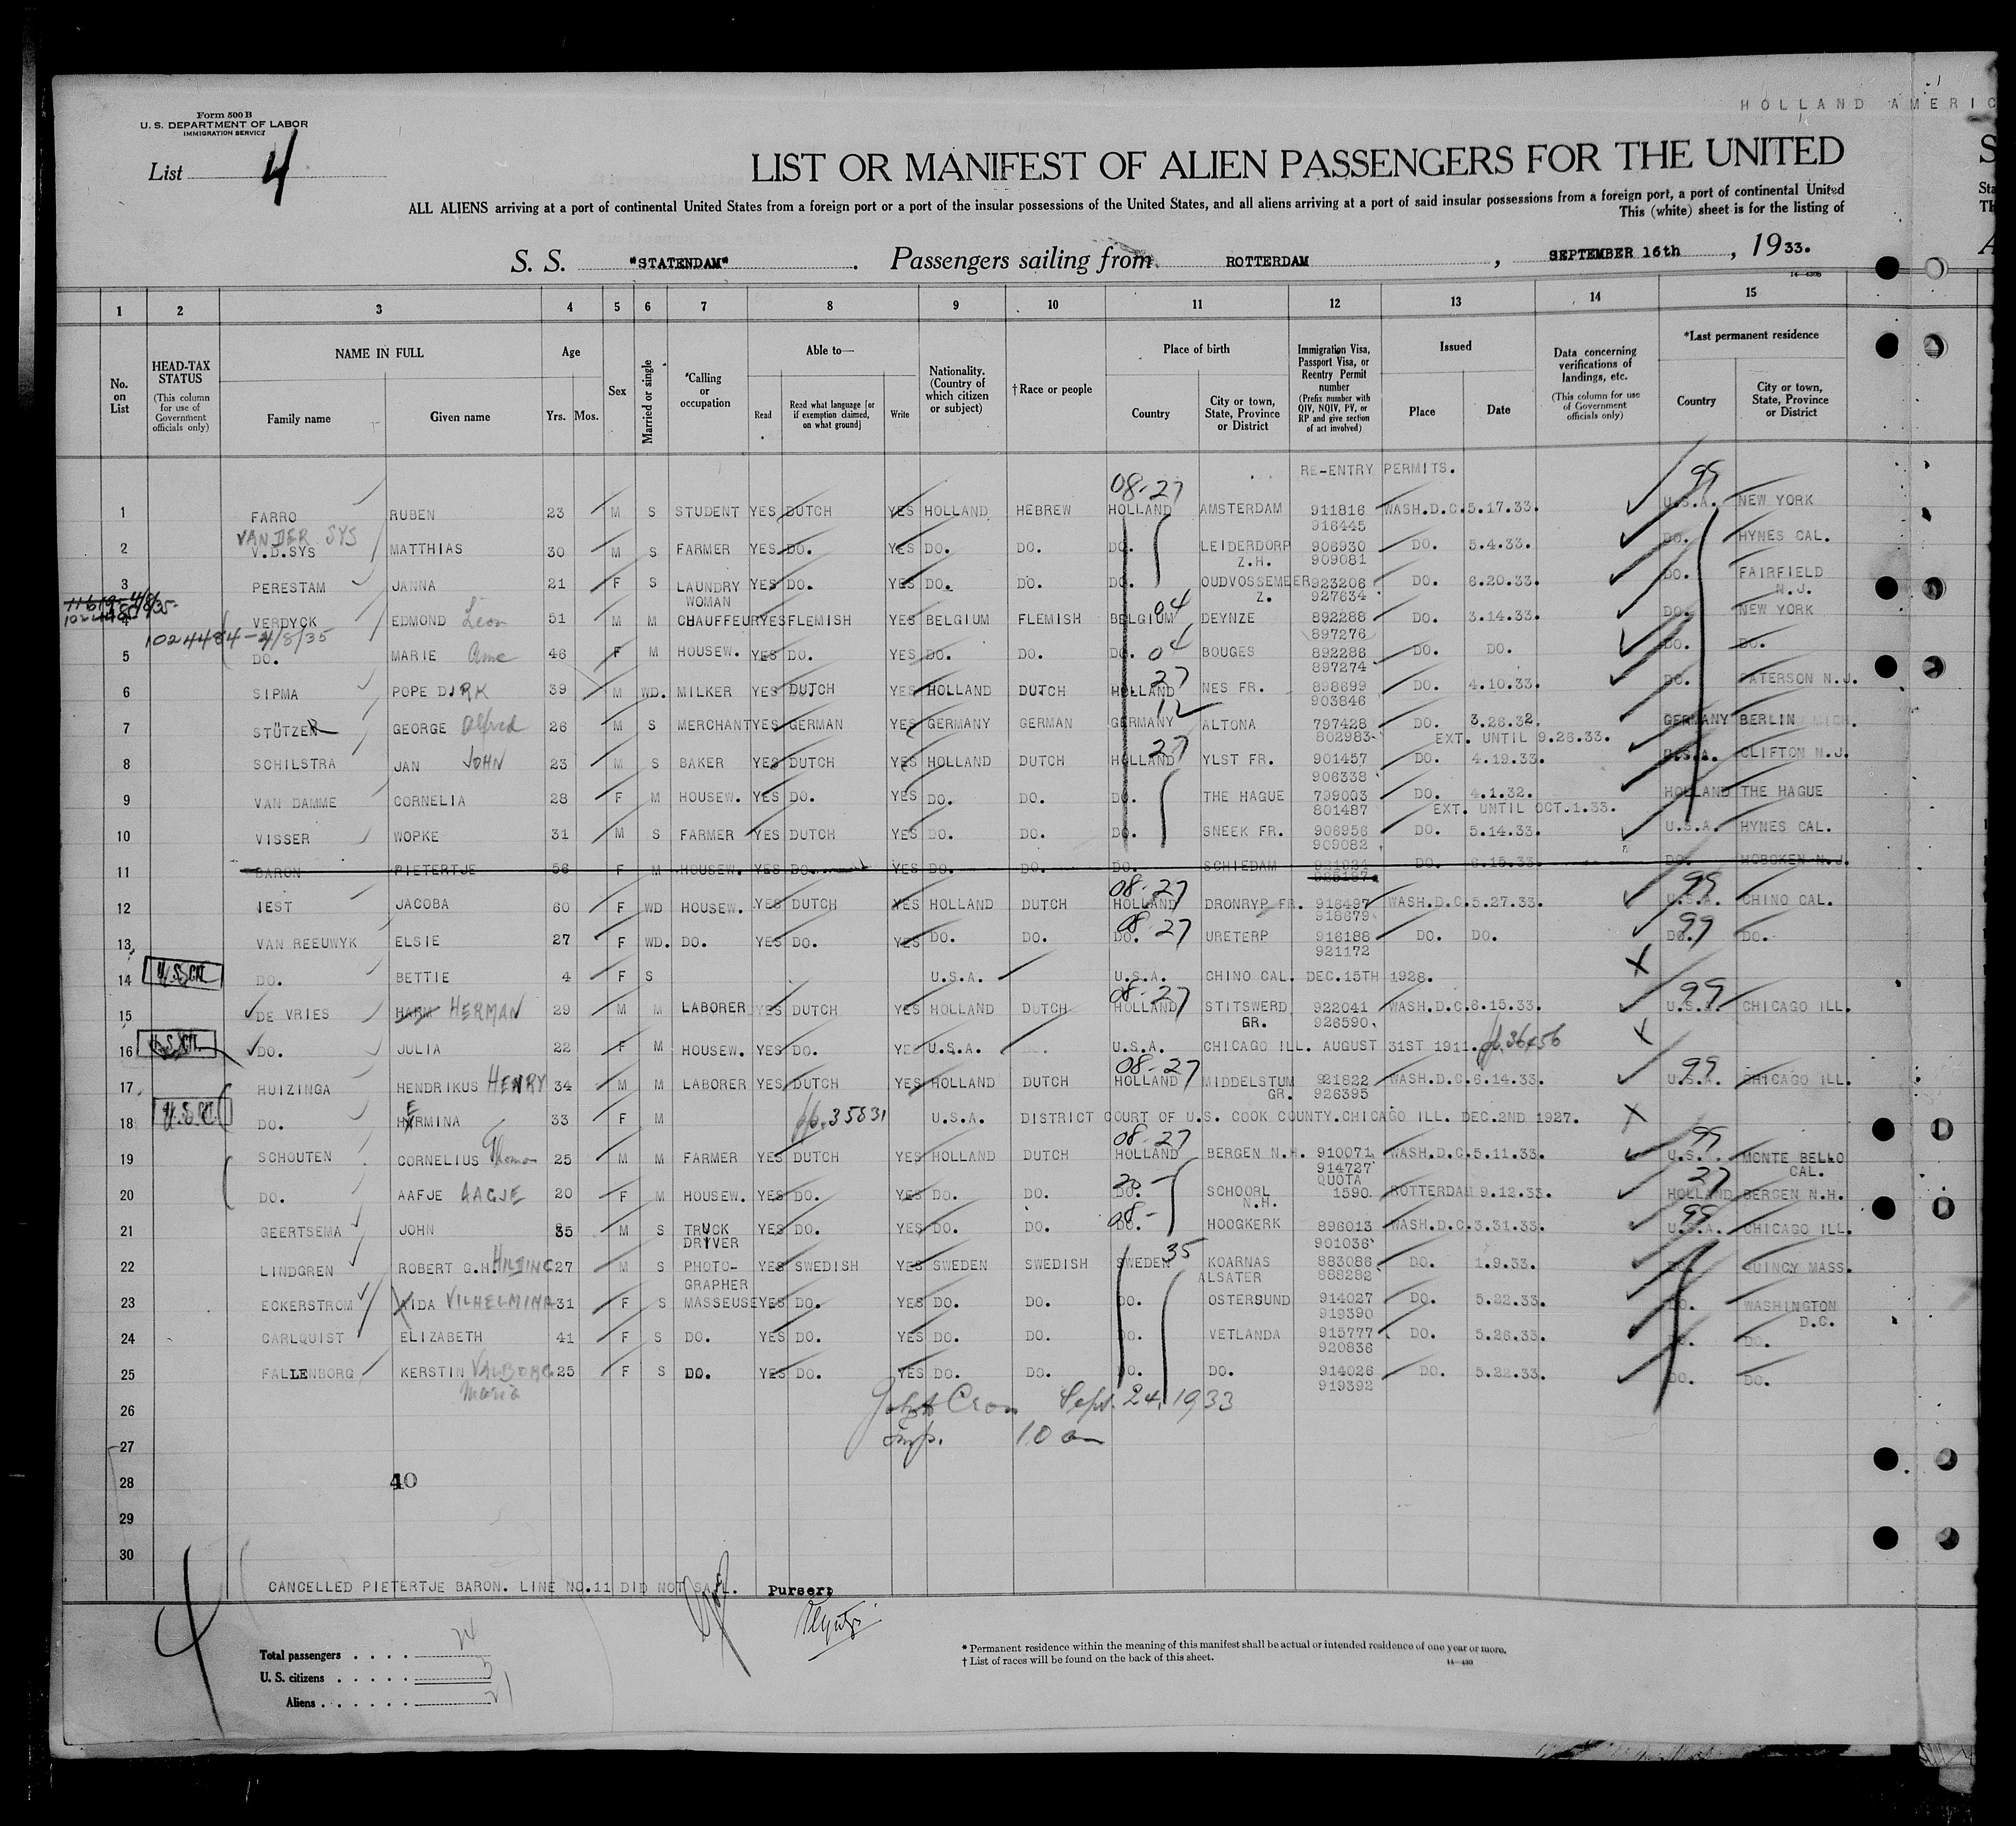 HOLLAND AMERIC
Form 500 B
U. S. DEPARTMENT OF LABOR
IMMIGRATION SERVICE
List 4
LIST OR MANIFEST OF ALIEN PASSENGERS FOR THE UNITED
ALL ALIENS arriving at a port of continental United States from a foreign port or a port of the insular possessions of the United States, and all aliens arriving at a port of said insular possessions from a foreign port, a port of continental United
This (white) sheet is for the listing of
S. S. "STATENDAM" . Passengers sailing from ROTTERDAM , SEPTEMBER 16th , 1933.
1 2 3 4 5 6 7 8 9 10 11 12 13 14 15
No. on List
HEAD-TAX STATUS (This column for use of Government officials only)
NAME IN FULL Family name Given name
Age Yrs. Mos.
Sex
Married or single
*Calling or occupation
Able to— Read Read what language [or if exemption claimed, on what ground] Write
Nationality. (Country of which citizen or subject)
†Race or people
Place of birth Country City or town, State, Province or District
Immigration Visa, Passport Visa, or Reentry Permit number (Prefix number with QIV, NQIV, PV, or RP and give section of act involved)
Issued Place Date
Data concerning verifications of landings, etc. (This column for use of Government officials only)
*Last permanent residence Country City or town, State, Province or District
RE-ENTRY PERMITS.
08-27 99
1 FARRO RUBEN 23 M S STUDENT YES DUTCH YES HOLLAND HEBREW HOLLAND AMSTERDAM 911816 WASH.D.C. 5.17.33. U.S.A. NEW YORK
916445
VAN DER SYS
2 V.D.SYS MATTHIAS 30 M S FARMER YES DO. YES DO. DO. DO. LEIDERDORP 906930 DO. 5.4.33. DO. HYNES CAL.
Z.H. 909081
3 PERESTAM JANNA 21 F S LAUNDRY YES DO. YES DO. DO. DO. OUDVOSSEMEER 923206 DO. 6.20.33. DO. FAIRFIELD
WOMAN Z. 927634 N.J.
4 VERDYCK EDMOND Leon 51 M M CHAUFFEUR YES FLEMISH YES BELGIUM FLEMISH BELGIUM 04 DEYNZE 892288 DO. 3.14.33. DO. NEW YORK
1024484-4/8/35 897276
5 DO. MARIE 46 F M HOUSEW. YES DO. YES DO. DO. DO. 04 BOUGES 892286 DO. DO. DO. DO.
897274
6 SIPMA POPE DIRK 39 M WD. MILKER YES DUTCH YES HOLLAND DUTCH HOLLAND 27 NES FR. 898699 DO. 4.10.33. DO. PATERSON N.J.
903846
7 STÜTZER GEORGE Alfred 26 M S MERCHANT YES GERMAN YES GERMANY GERMAN GERMANY 12 ALTONA 797428 DO. 3.26.32. GERMANY BERLIN
802983 EXT. UNTIL 9.26.33.
8 SCHILSTRA JAN JOHN 23 M S BAKER YES DUTCH YES HOLLAND DUTCH HOLLAND 27 YLST FR. 901457 DO. 4.19.33. U.S.A. CLIFTON N.J.
906338
9 VAN DAMME CORNELIA 28 F M HOUSEW. YES DO. YES DO. DO. DO. THE HAGUE 799003 DO. 4.1.32. HOLLAND THE HAGUE
801487 EXT. UNTIL OCT.1.33.
10 VISSER WOPKE 31 M S FARMER YES DUTCH YES DO. DO. DO. SNEEK FR. 906956 DO. 5.14.33. U.S.A. HYNES CAL.
909082
11 BARON PIETERTJE 56 F M HOUSEW. YES DO. YES DO. DO. DO. SCHIEDAM DO. 6.15.33. DO. HOBOKEN N.J.
08-27 99
12 IEST JACOBA 60 F WD HOUSEW. YES DUTCH YES HOLLAND DUTCH HOLLAND DRONRYP FR. 916497 WASH.D.C. 5.27.33. U.S.A. CHINO CAL.
918679
13 VAN REEUWYK ELSIE 27 F WD. DO. YES DO. YES DO. DO. DO. 08-27 URETERP 916188 DO. DO. DO. 99 DO.
921172
14 U.S.CIT. DO. BETTIE 4 F S U.S.A. U.S.A. CHINO CAL. DEC.15TH 1928. X
08-27 99
15 DE VRIES HARM HERMAN 29 M M LABORER YES DUTCH YES HOLLAND DUTCH HOLLAND STITSWERD 922041 WASH.D.C. 6.15.33. U.S.A. CHICAGO ILL.
GR. 926590
16 U.S.CIT. DO. JULIA 22 F M HOUSEW. YES DO. YES U.S.A. DO. U.S.A. CHICAGO ILL. AUGUST 31ST 1911. 36456 X
08-27 99
17 HUIZINGA HENDRIKUS HENRY 34 M M LABORER YES DUTCH YES HOLLAND DUTCH HOLLAND MIDDELSTUM 921822 WASH.D.C. 6.14.33. U.S.A. CHICAGO ILL.
GR. 926395
18 U.S.CIT. DO. HERMINA 33 F M 35831 U.S.A. DISTRICT COURT OF U.S. COOK COUNTY.CHICAGO ILL. DEC.2ND 1927. X
08-27 99
19 SCHOUTEN CORNELIUS Thomas 25 M M FARMER YES DUTCH YES HOLLAND DUTCH HOLLAND BERGEN N.H. 910071 WASH.D.C. 5.11.33. U.S.A. MONTE BELLO
914727 CAL.
QUOTA
20 DO. AAFJE AAGJE 20 F M HOUSEW. YES DO. YES DO. DO. DO. 20- SCHOORL 1590 ROTTERDAM 9.12.33. 27 HOLLAND BERGEN N.H.
N.H.
21 GEERTSEMA JOHN 35 M S TRUCK YES DO. YES DO. DO. DO. 08- HOOGKERK 896013 WASH.D.C. 3.31.33. 99 U.S.A. CHICAGO ILL.
DRIVER 901036
22 LINDGREN ROBERT G.H. HILDING 27 M S PHOTO- YES SWEDISH YES SWEDEN SWEDISH SWEDEN 35 KOARNAS 983086 DO. 1.9.33. DO. QUINCY MASS.
GRAPHER ALSATER 988282
23 ECKERSTROM AIDA VILHELMINA 31 F S MASSEUSE YES DO. YES DO. DO. DO. OSTERSUND 914027 DO. 5.22.33. DO. WASHINGTON
919390 D.C.
24 CARLQUIST ELIZABETH 41 F S DO. YES DO. YES DO. DO. DO. VETLANDA 915777 DO. 5.26.33. DO. DO.
920836
25 FALLENBORG KERSTIN VALBORG 25 F S DO. YES DO. YES DO. DO. DO. DO. 914026 DO. 5.22.33. DO. DO.
Maria 919392
26 Sept. 24, 1933
27 Insp. 10 am
28 40
29
30
CANCELLED PIETERTJE BARON. LINE NO.11 DID NOT SAIL. Purser:
4
Total passengers . . . . 24
U. S. citizens . . . . . 3
Aliens . . . . . . 21
* Permanent residence within the meaning of this manifest shall be actual or intended residence of one year or more.
† List of races will be found on the back of this sheet.
14—430